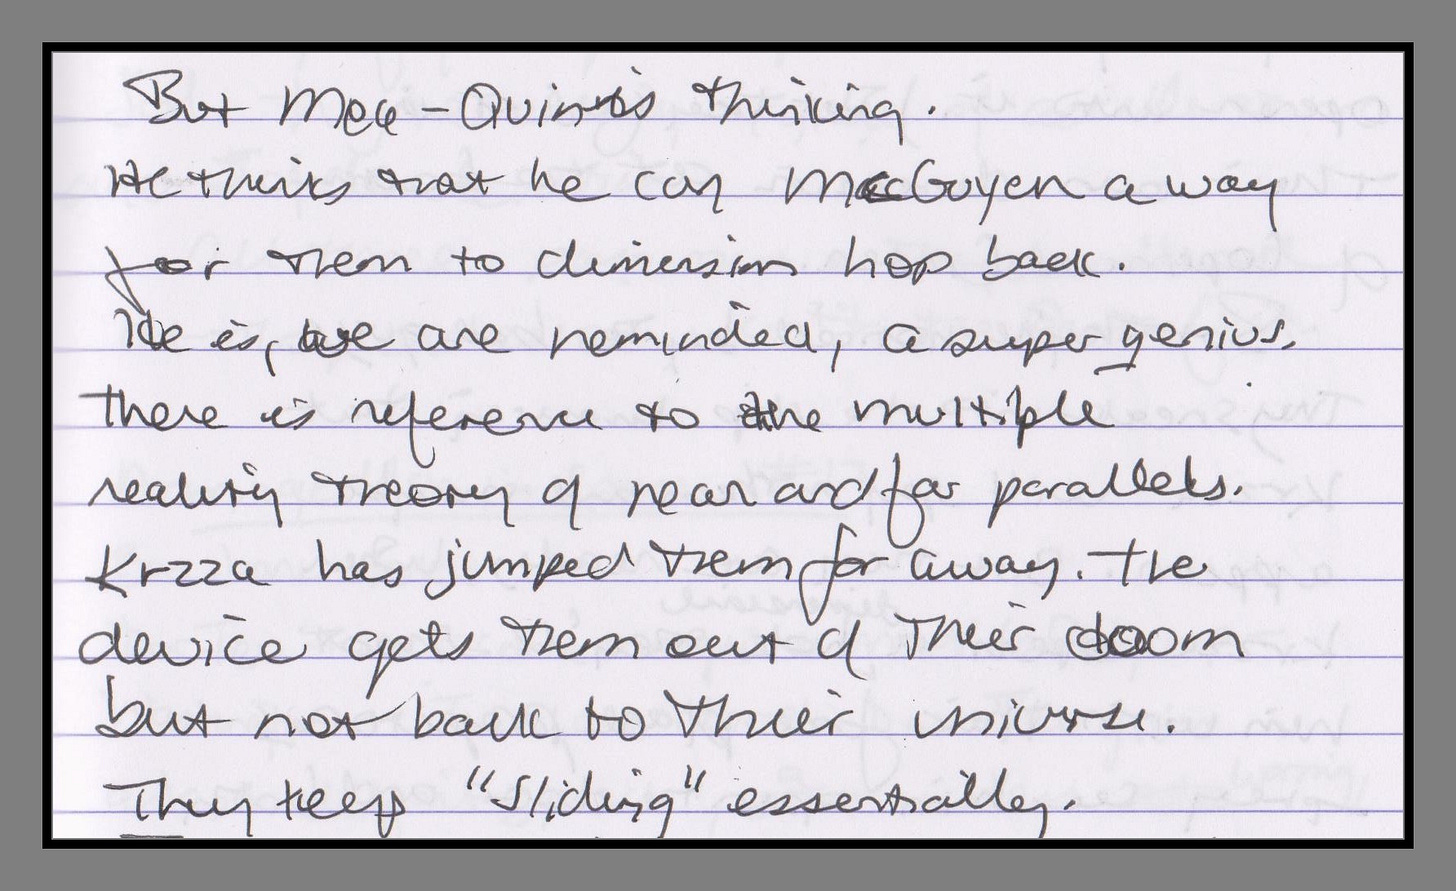 But Meq-Quin is thinking.
He thinks that he can MacGuyer a way
for them to dimension hop back.
He is, we are reminded, a super genius.
there is reference to the multiple
reality theory of near and far parallels.
Krzza has jumped them far away. The
device gets them out of Thier doom
but not back to Thier universe.
They keep "Sliding" essentially.